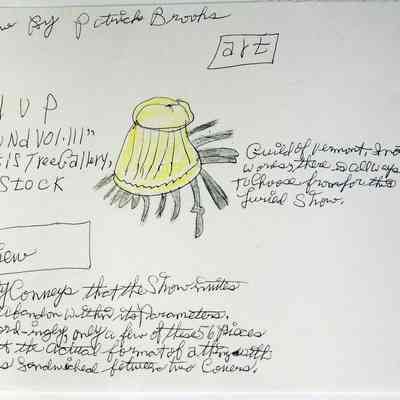 by Patrick Brooks
art
U P
ND VOL. III"
IS Tree Gallery,
STOCK
Guild of Vermont,
works, there is allways
to choose from for this
Juried Show.
iew
Conneys that the Show invites
abandon within its Parameters.
ord-ingly, only a few of these 56 pieces
the actual format of a thing with
s Sandwiched between two Covers.